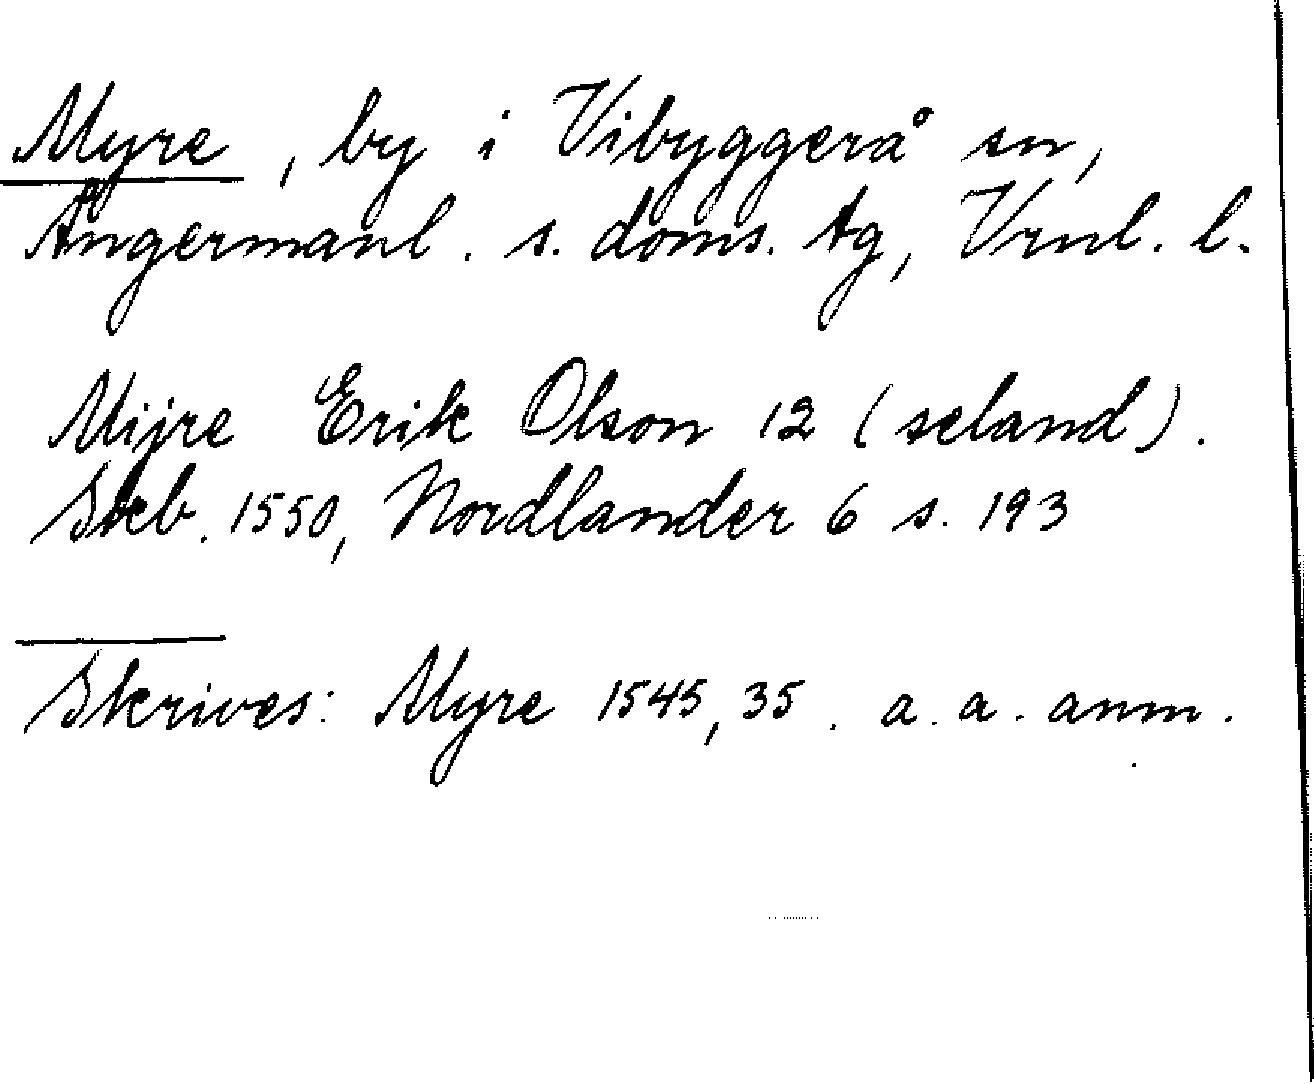 Myre, by i Vibyggerå sn,
Ångermanl. s. doms. tg, Vrnl. l.
Mijre Erik Olson 12 (seland).
Skeb. 1550, Nordlander 6 s. 193
Skrives: Myre 1545, 35. a. a. anm.